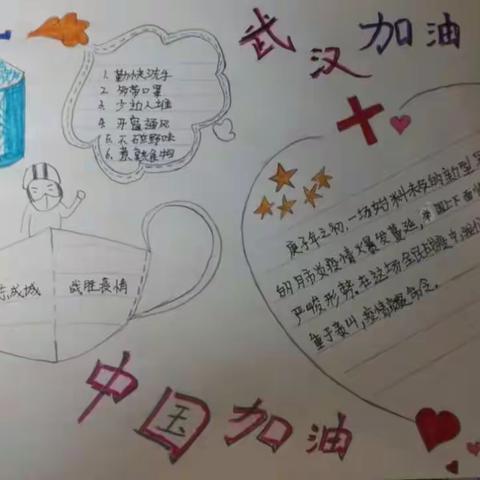 武汉加油
1. 勤快洗手
2. 外带口罩
3. 少扎人堆
4. 开窗通风
5. 不吃野味
6. 煮熟食物
成城
战胜疫情
庚子年之初,一场始料未及的新型
的肺炎疫情爆发蔓延,举国上下面
严峻形势。在这场全民战疫中
重于泰山,疫情就是命令。
中国加油